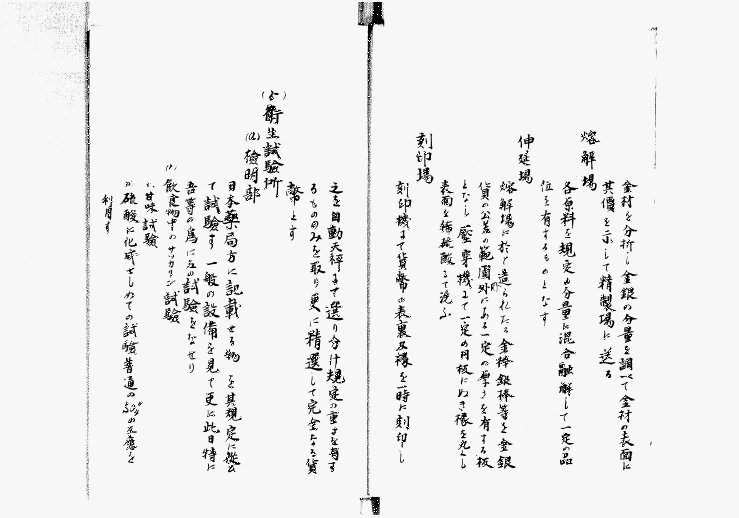 金材を分析し金銀の分量を調べて金材の表面に
其價を示して精製場に送る
熔解場
各原料を規定の分量に混合融解して一定の品
位を有するものとなす
伸延場
熔解場に於て造られたる金棒銀棒等を金銀
貨の公差の範圍外にある一定の厚さを有する板
となし壓穿機にて一定の円板にぬき縁を丸くし
表面を稀硫酸にて洗ふ
刻印場
刻印機にて貨幣の表裏及縁を一時に刻印し
之を自動天秤にて選り分け規定の重さを有す
るもののみを取り更に精選して完全なる貨
幣とす
(5)衛生試驗所
(a)檢明部
日本藥局方に記載せる物を其規定に從ひ
て試驗す一般の設備を見て更に此日特に
吾等の爲に左の試驗をなせり
飲食物中のサッカリン試驗
甘味試驗
硫酸に化成せしめての試驗普通のSO₄″の反應を
利用す